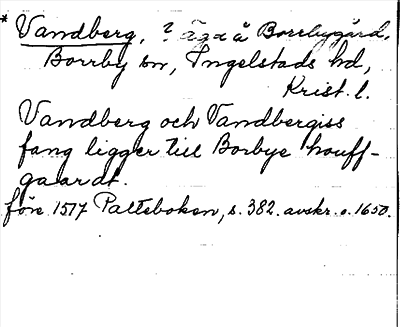 * Vandberg, ? äga å Borrbygård,
Borrby sn, Ingelstads hd,
Krist. l.
Vandberg och Vandbergiss
fang ligger till Borbye houff-
gaardt.
före 1517 Palteboken, s. 382. avskr. o. 1650.